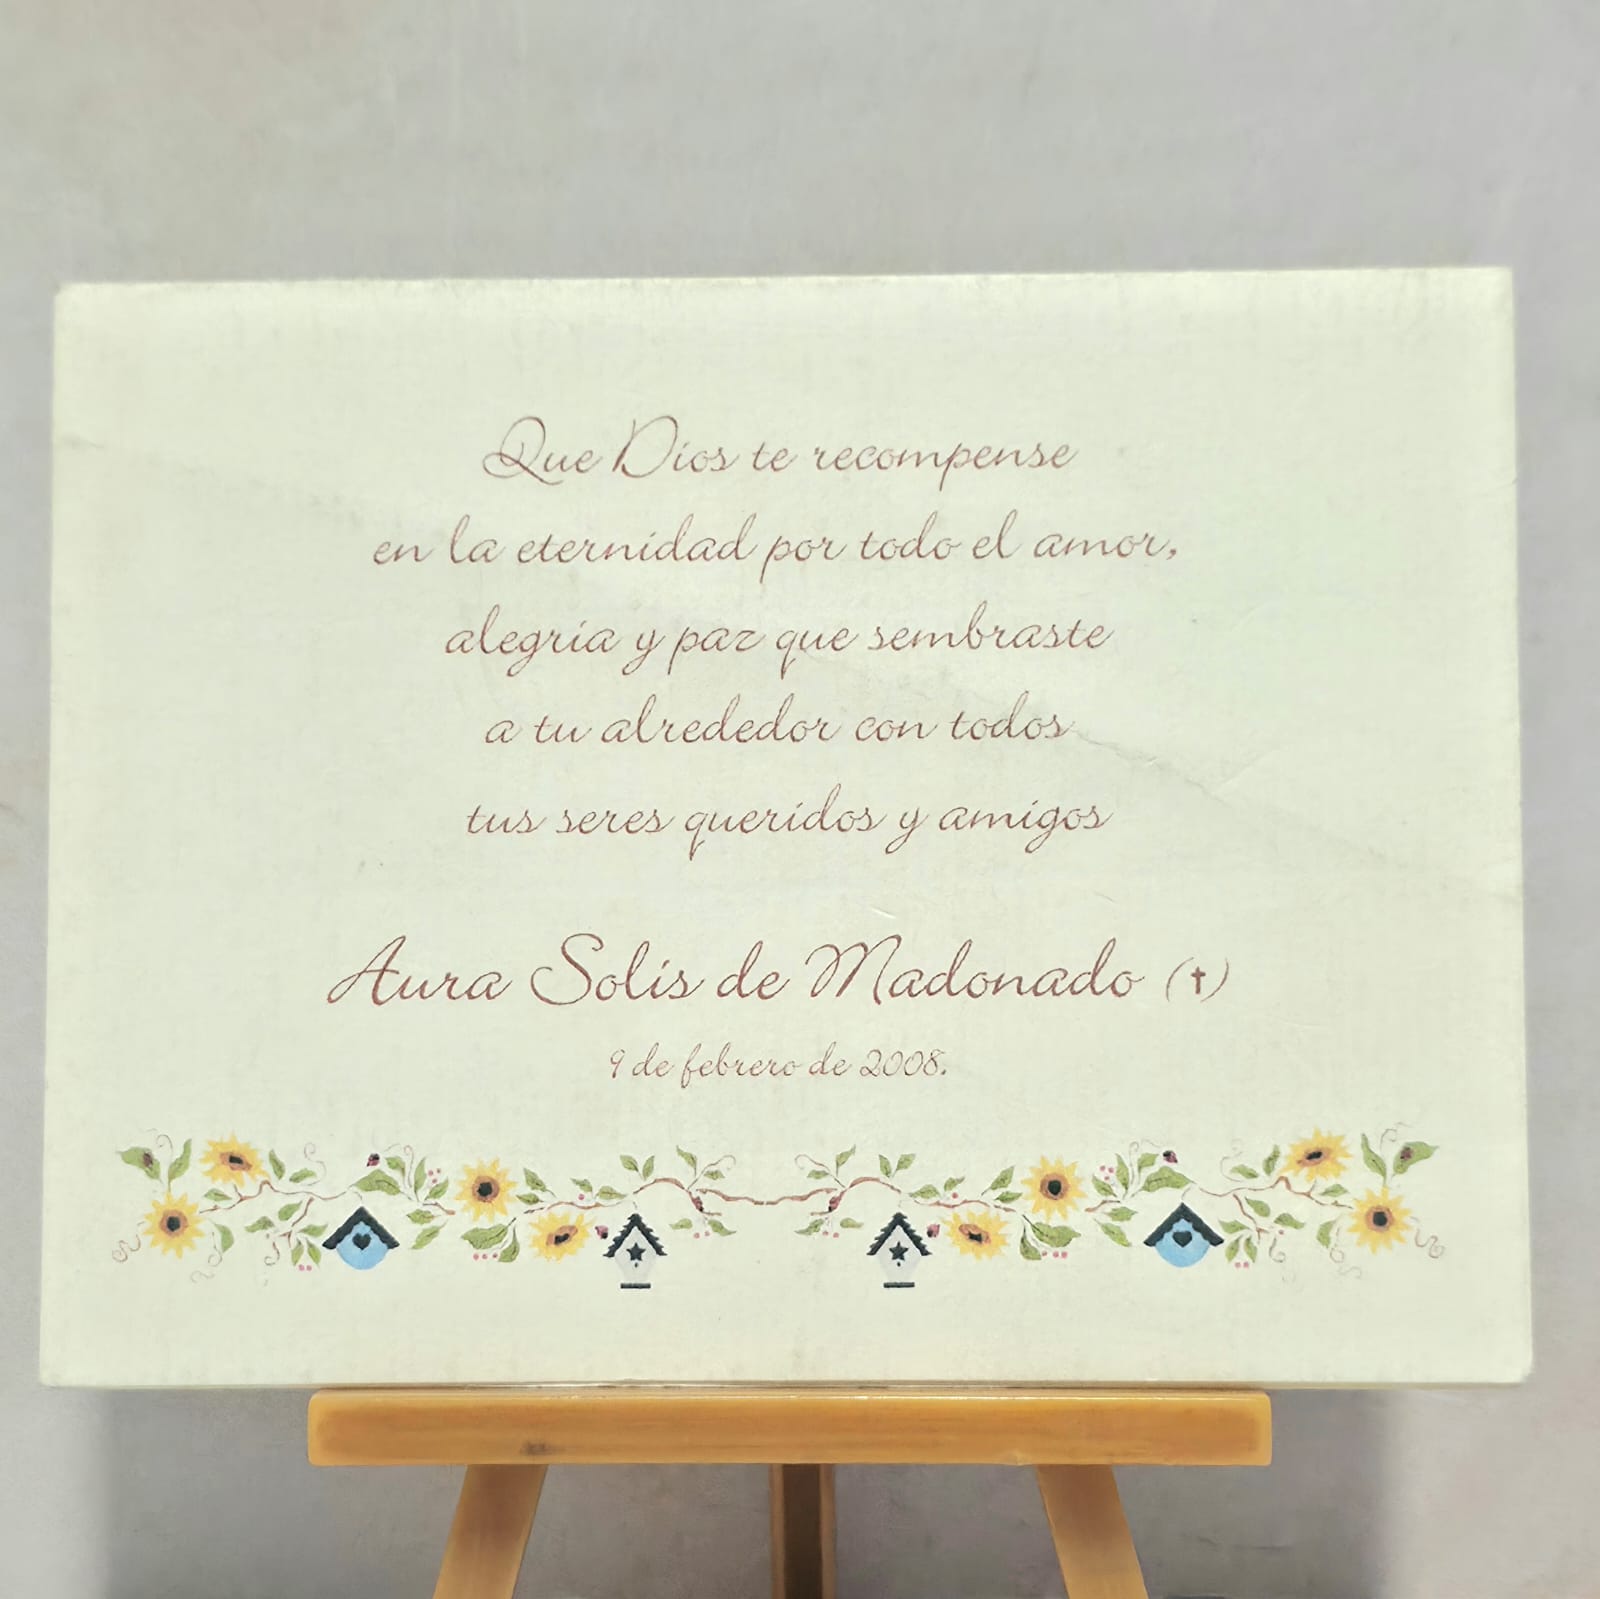 Que Dios te recompense
en la eternidad por todo el amor,
alegria y paz que sembraste
a tu alrededor con todos
tus seres queridos y amigos
Aura Solis de Madonado (✝)
9 de febrero de 2008.